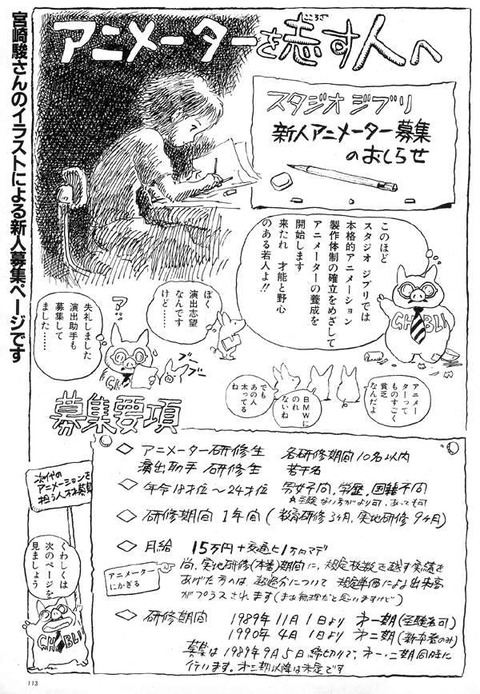 宮崎駿さんのイラストによる新人募集ページです
アニメーターを志す人へ
こころざ
スタジオ ジブリ
新人アニメーター募集
のおしらせ
このほど
スタジオ ジブリでは
本格的アニメーション
製作体制の確立をめざして
アニメーターの養成を
開始します
来たれ 才能と野心
のある若人よ!!
GHIBLI
ぼく
演出志望
なんです
けど……
?
失礼しました
演出助手も
募集して
ました……
ブーブー
アニメー
ターって
ものすごく
貧乏
なんだよ
BMWに
のれ
ないね
でも
あの人
太ってる
ね
募集要項
◇ アニメーター研修生 各研修期間10名以内
演出助手 研修生 若干名
◇ 年令18才位〜24才位 男女不問、学歴、国籍不問
◇ 研修期間 1年間 (教育研修3ヶ月、実地研修9ヶ月)
◇ 月給 15万円+交通ヒ1万円マデ
アニメーター
にかぎる
尚、実地研修(本番)期間に、規定枚数を越す実績を
あげた方へは、超過分について 規定単価による出来高
がプラスされます(まず無理だと思いますけど)
◇ 研修期間 1989年11月1日より 第一期(経験者可)
1990年4月1日より 第二期(新卒者のみ)
募集は1989年9月5日締切りで、第一、二期同時に
行います。第三期以降は未定です
次代の
アニメーションを
担う人材募集
くわしくは
次のページを
見ましょう
GHIBLI
113